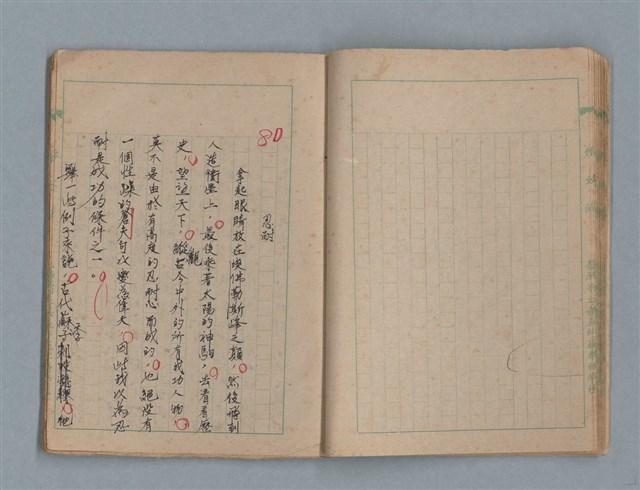 80
忍耐
拿起眼睛放在埃佛勒斯峰之顛，然後飛到
人造衛星上，最後乘著太陽的神駒，去看看歷
史，望望天下，縱觀古今中外的所有成功人物，
莫不是由於有高度的忍耐心而成的，也絕沒有
一個性躁的蒼夫可以變為偉大，因此我以為忍
耐是成功的條件之一。
舉一些例子來說，古代蘇子